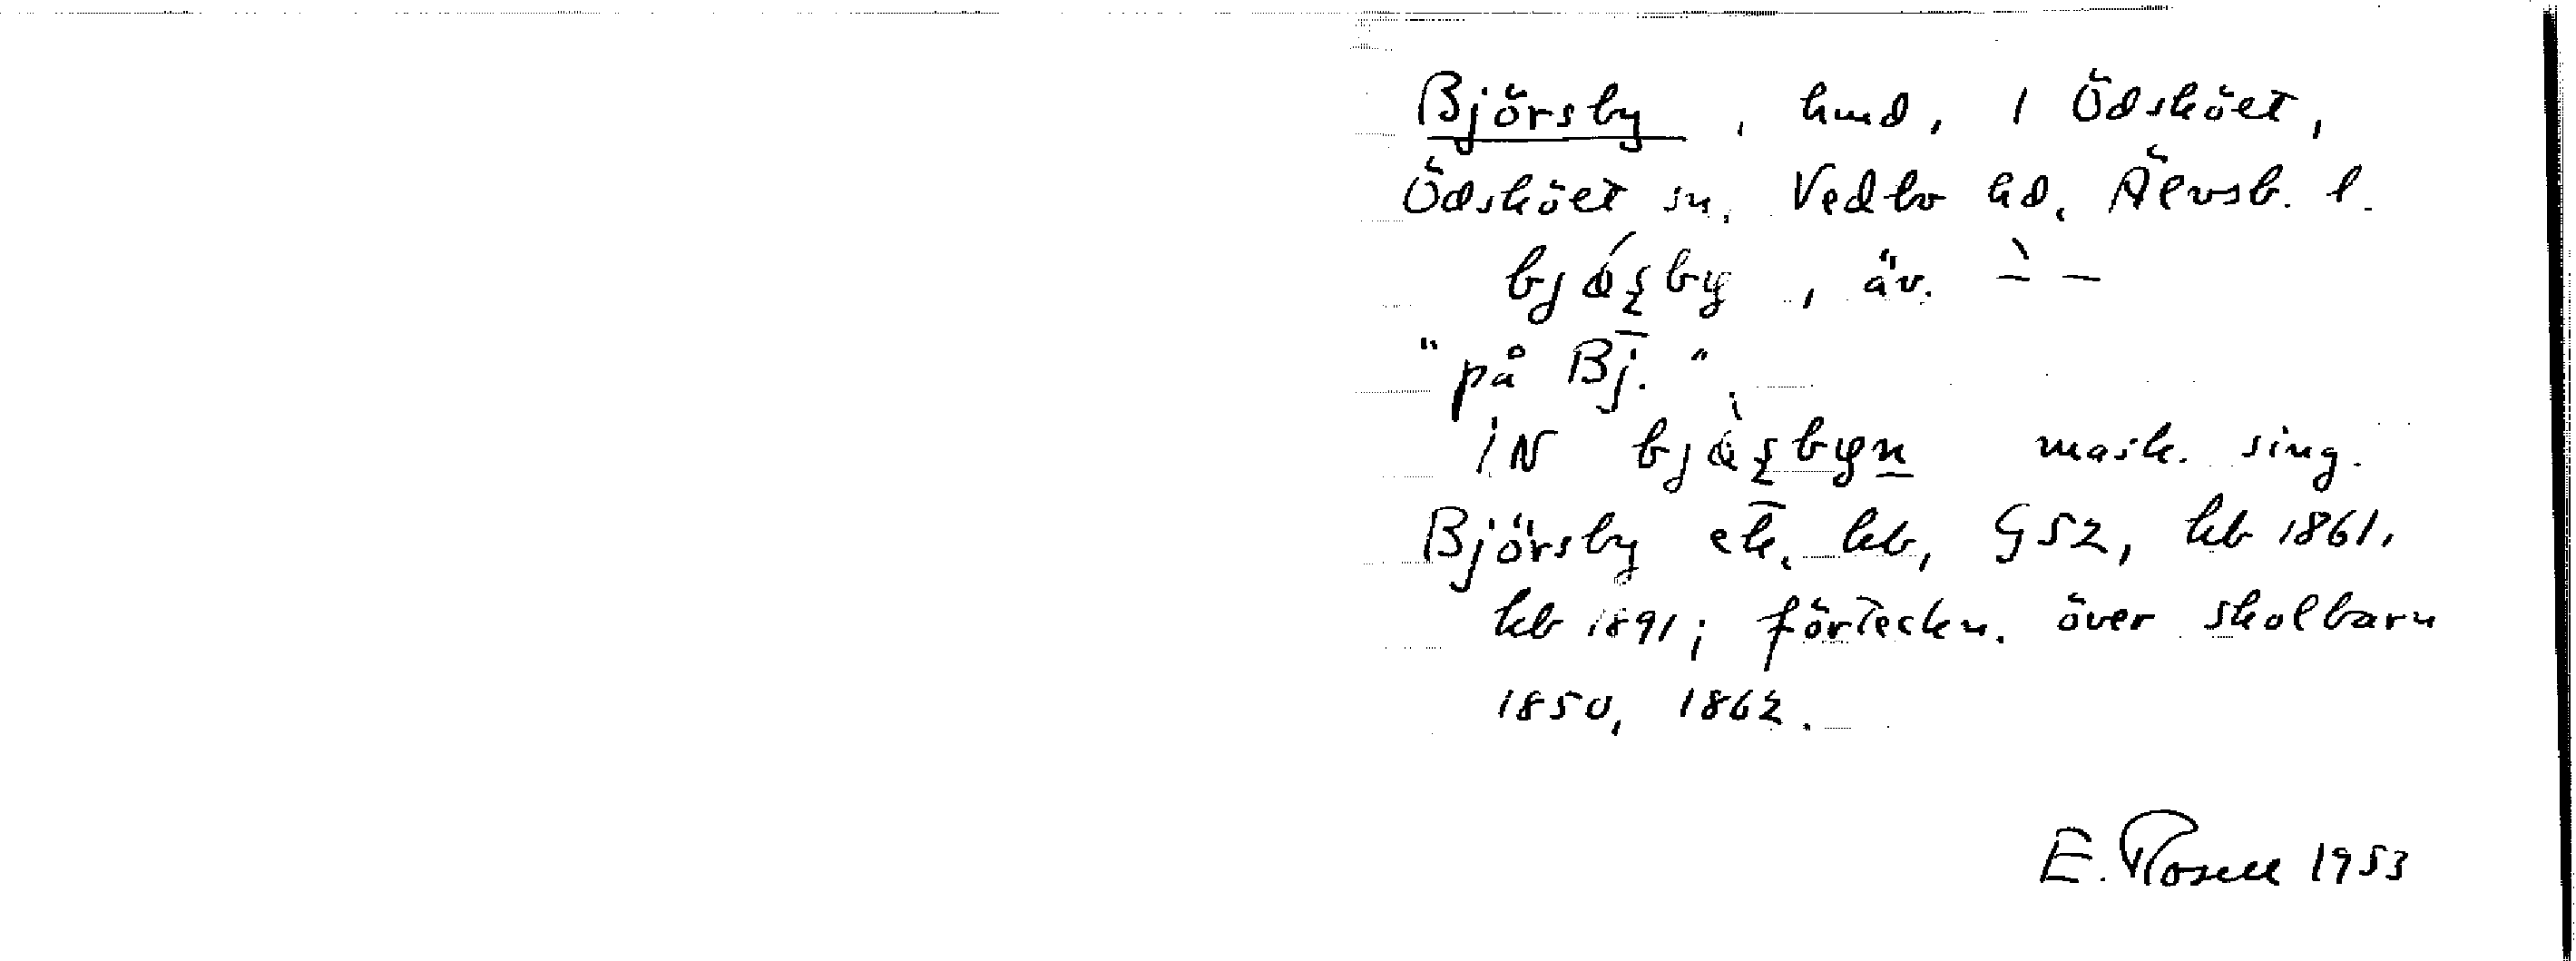 Björsby, hmd, i Ödsköet,
Ödsköet sn, Vedbo hd, Älvsb. l.
äv. ̀– –
"på Bj."
mask. sing.
Björsby ek. kb, GS2, kb 1861,
kb 1891; förteckn. över skolbarn
1850, 1862.
E. Rosell 1953